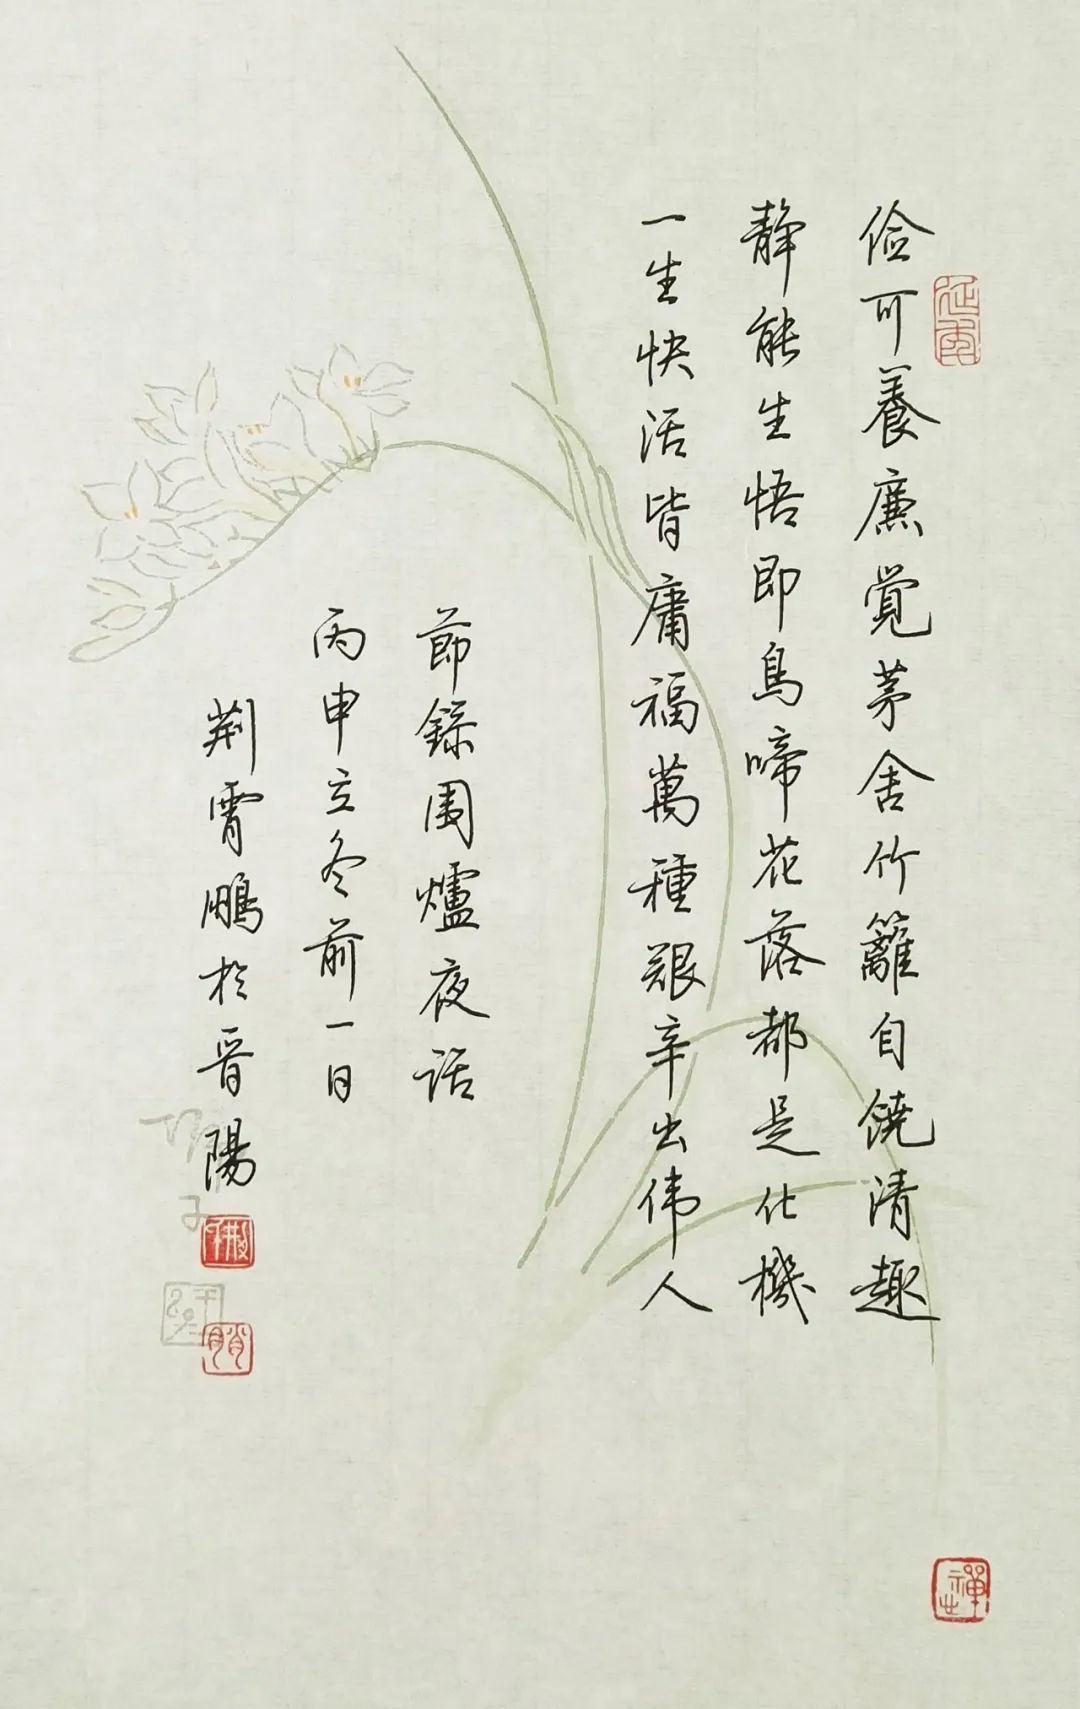 俭可養廉覚茅舍竹籬自饒清趣
静能生悟即鳥啼花落都是化機
一生快活皆庸福萬種艰辛出伟人
節錄围爐夜话
丙申立冬前一日
荆霄鵬於晋陽